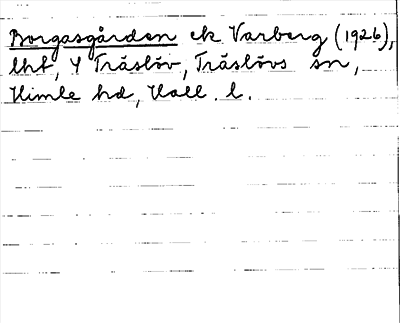 Borgasgården ek Varberg (1926),
lht, Y Träslöv, Träslövs sn,
Himle hd, Hall. l.